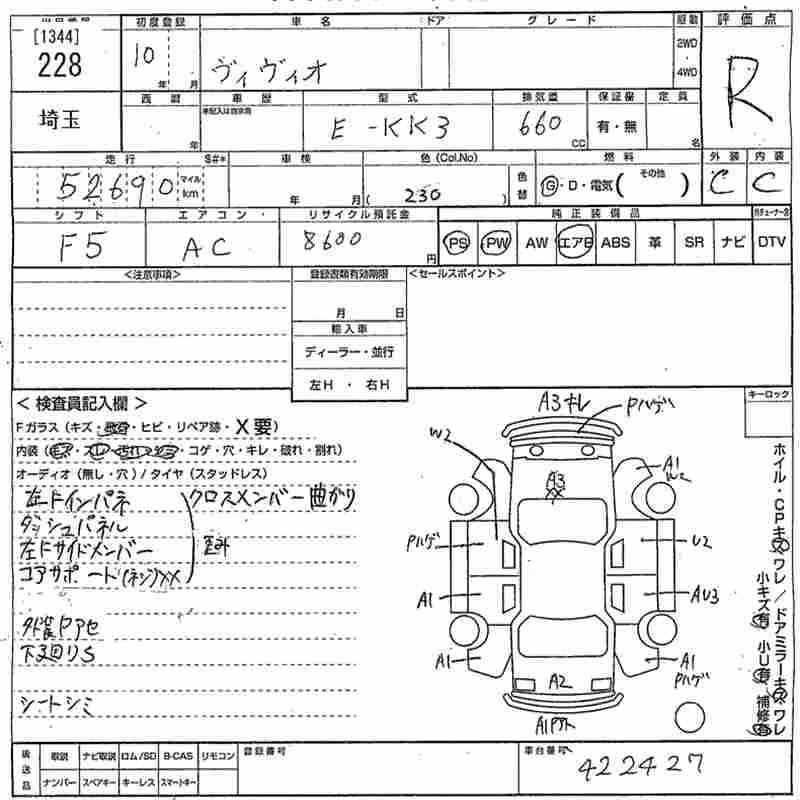 [1344]
228
埼玉
初度登録
10
年 月
車名
ヴィヴィオ
ドア
グレード
駆動
2WD
・
4WD
評価点
R
西暦
年
車歴
未記入は自家用
型式
E-KK3
排気量
660
CC
保証書
有・無
定員
名
走行
52690
マイル
km
S#*
車検
年 月
色(Col.No)
( 230 )
色替
燃料
G・D・電気( その他 )
外装
C
内装
C
シフト
F5
エアコン・
AC
リサイクル預託金
8600
円
純正装備品
PS PW AW エアB ABS 革 SR ナビ
DTV
<注意事項>
登録書類有効期限
月 日
輸入車
ディーラー・並行
左H ・ 右H
<セールスポイント>
<検査員記入欄>
Fガラス(キズ・飛石・ヒビ・リペア跡・X要)
内装(キズ・スレ・汚れ・シミ・コゲ・穴・キレ・破れ・割れ)
オーディオ(無し・穴)/タイヤ(スタッドレス)
左Fインパネ
ダッシュパネル
左Fサイドメンバー
コアサポート(ネジ)XX
クロスメンバー曲がり
歪み
外装Pアセ
下廻りS
シートシミ
キーロック
A3キレ
Pハゲ
W2
A3
XX
A1
W2
Pハゲ
U2
A1
AU3
A1
A1
Pハゲ
A2
A1Pアト
ホイル・CPキズワレ/ドアミラーキズワレ
小キズ有 小U有 補修有
後送品
取説 ナビ取説 ロム/SD B-CAS リモコン
ナンバー スペアキー キーレス スマートキー
登録番号
車台番号
422427